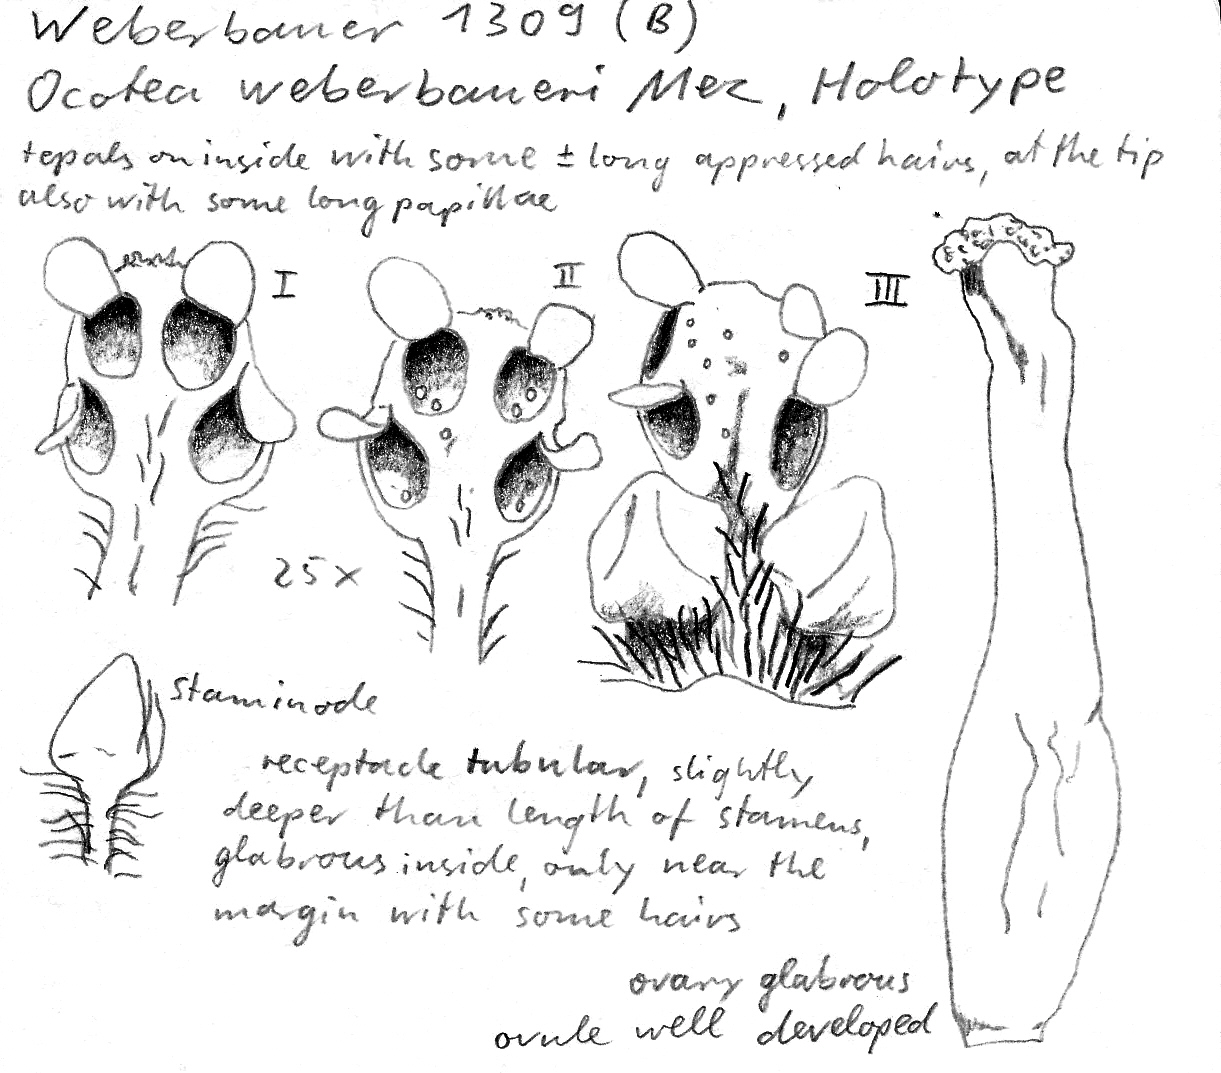 Weberbauer 1309 (B)
Ocotea weberbaueri Mez, Holotype
tepals on inside with some ± long appressed hairs, at the tip
also with some long papillae
I
II
III
25 x
staminode
receptacle tubular, slightly
deeper than length of stamens,
glabrous inside, only near the
margin with some hairs
ovary glabrous
ovule well developed